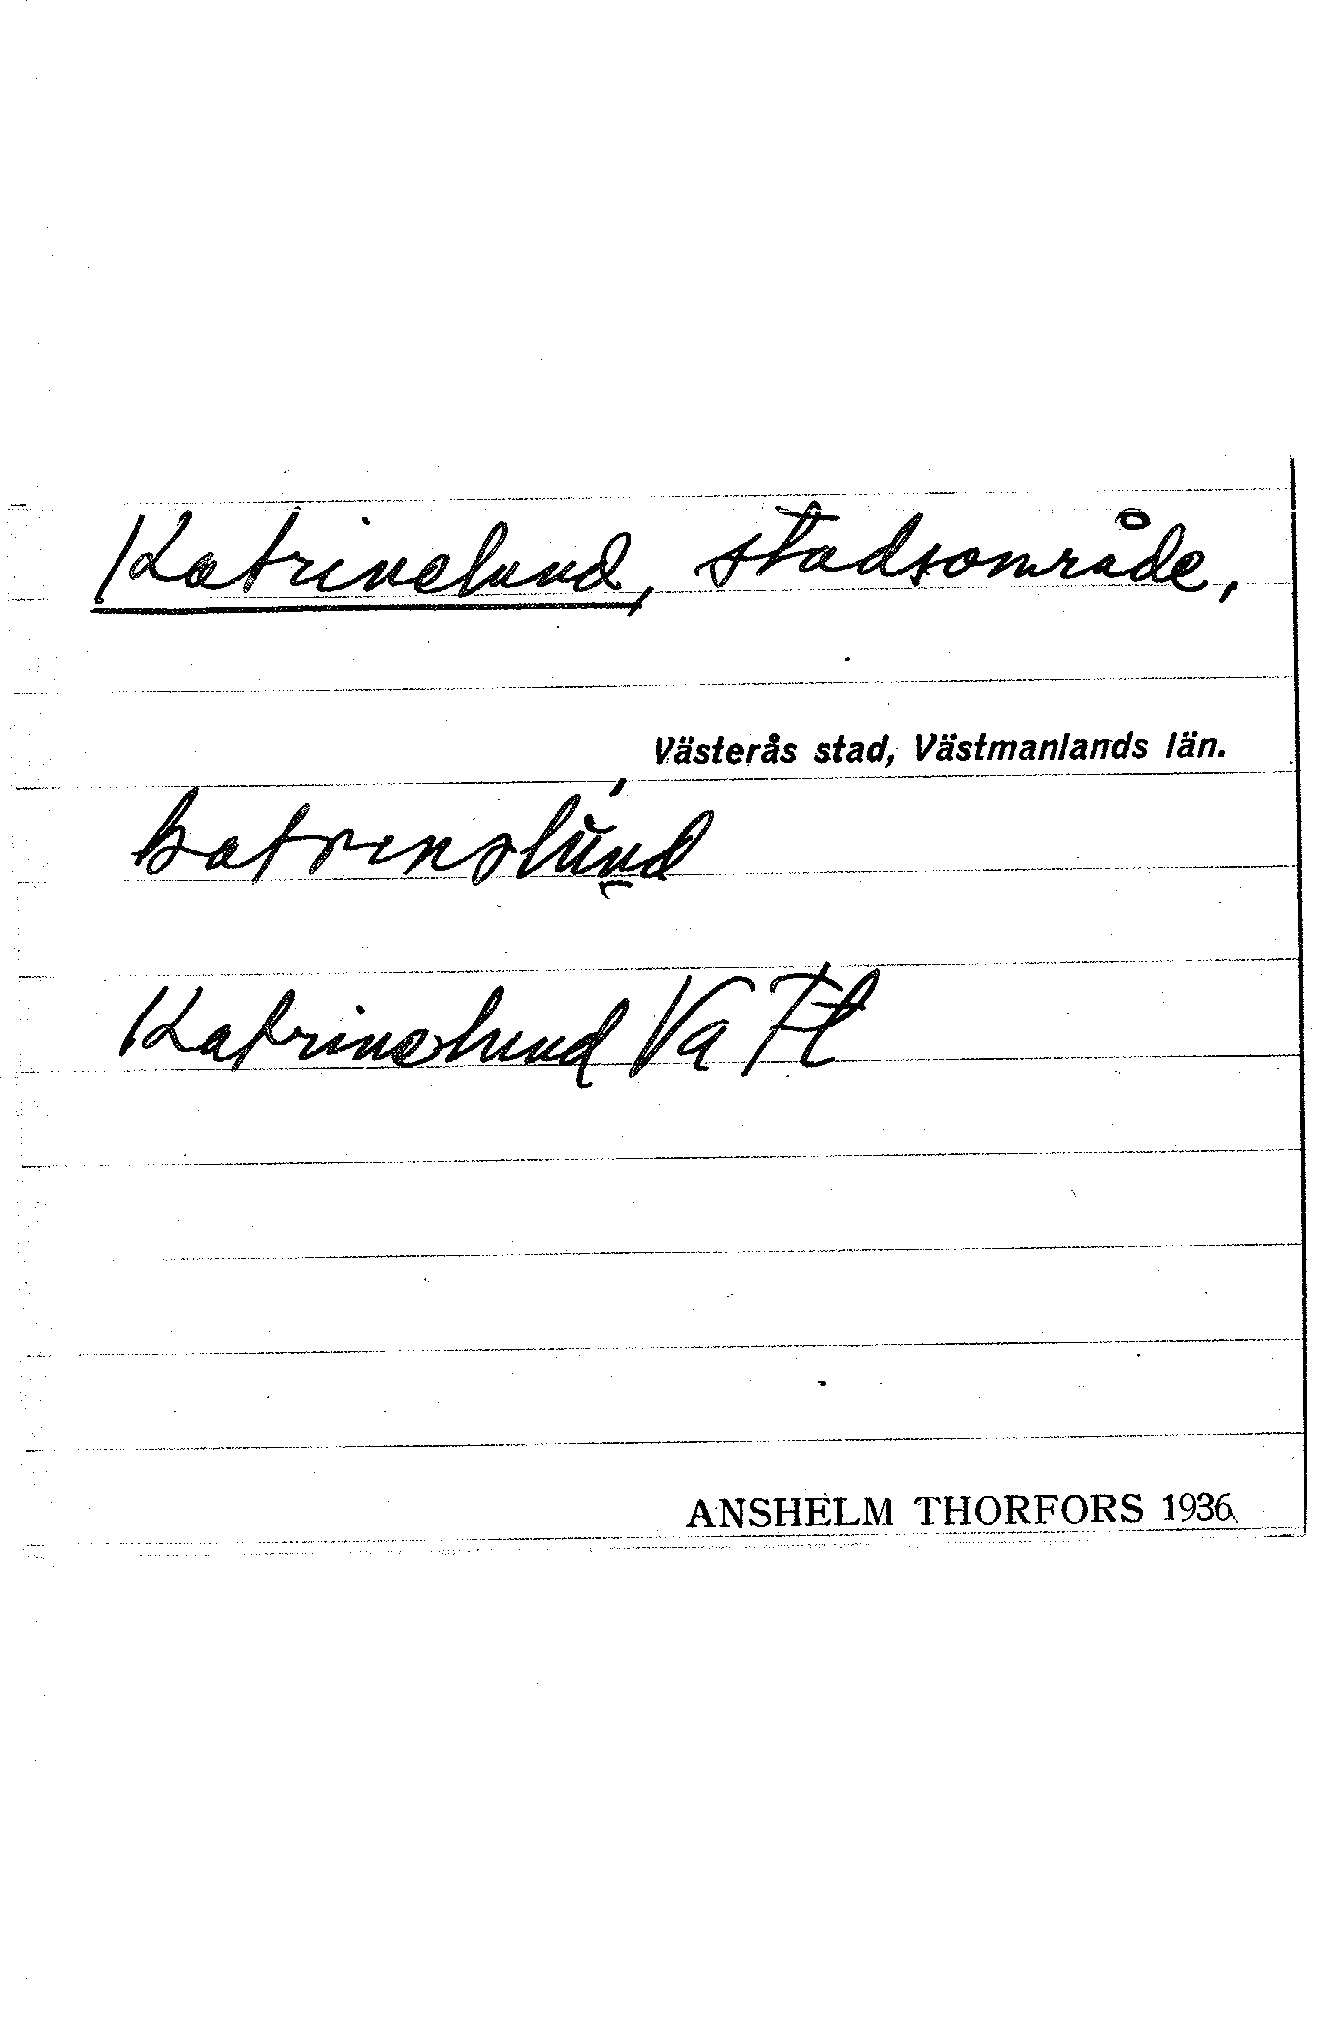 Katrinelund, stadsområde,
Västerås stad, Västmanlands län.
katrenslund
Katrinelund Va Fl
ANSHELM THORFORS 1936